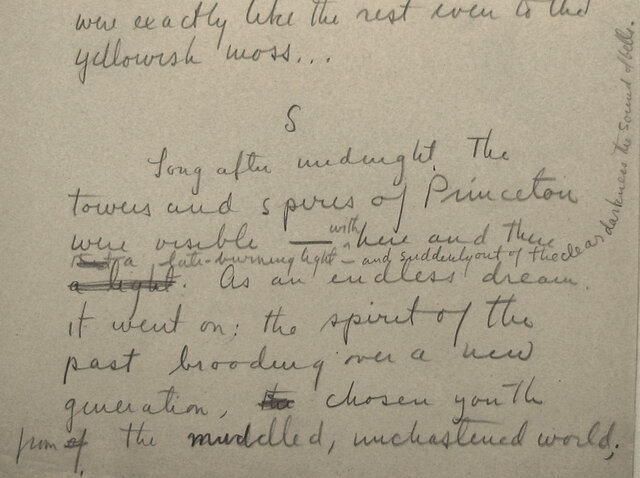 were exactly like the rest even to the
yellowish moss...
S
Long after midnight. The
towers and spires of Princeton
were visible — with here and there
a late-burning light — and suddenly out of the clear darkness the sound of bells.
a light. As an endless dream
it went on; the spirit of the
past brooding over a new
generation, the chosen youth
from of the muddled, unchastened world,